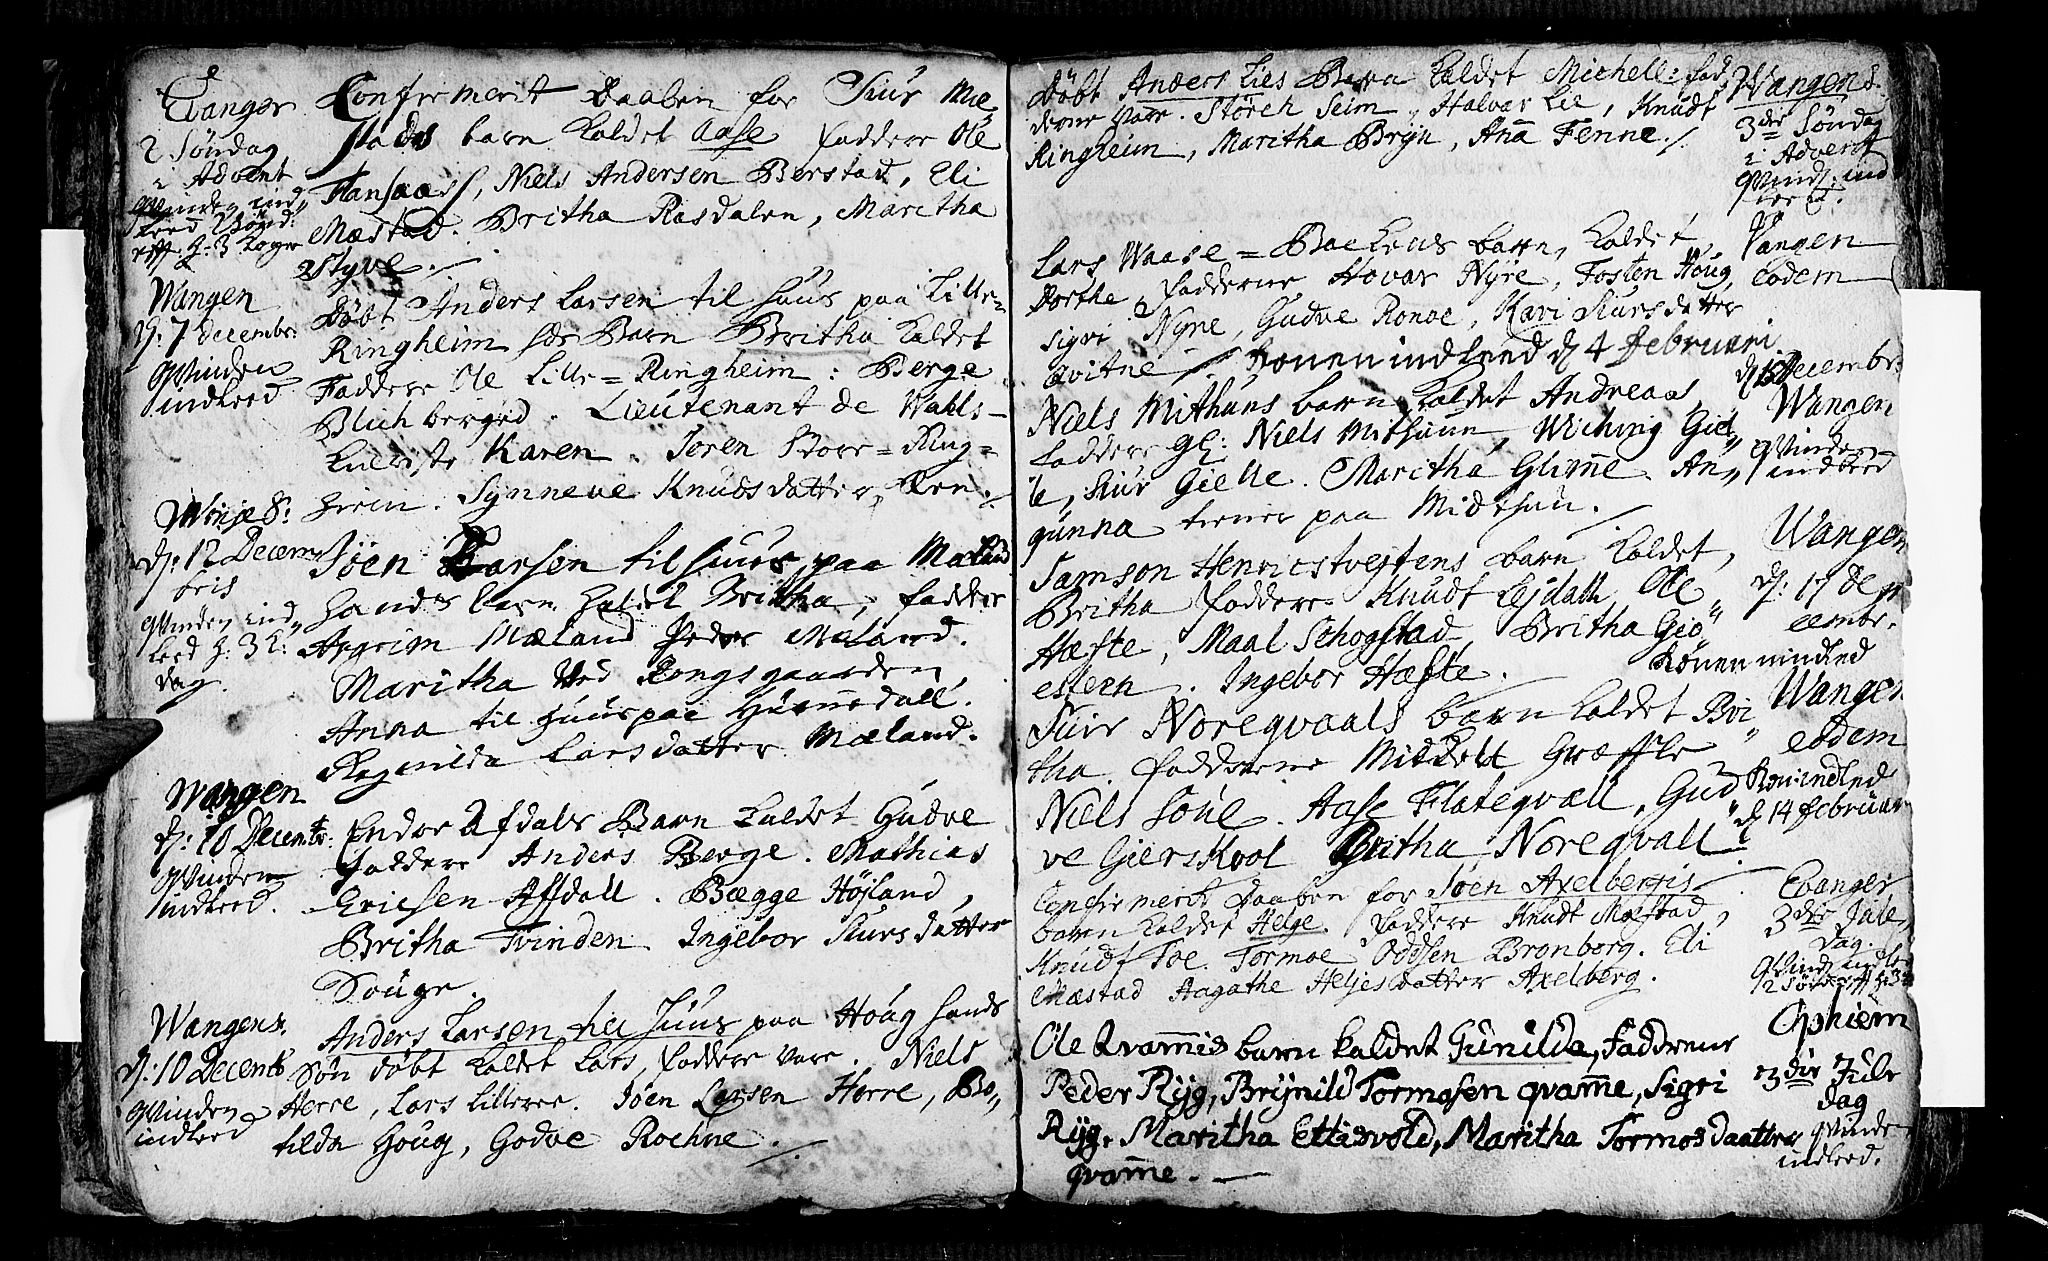 Evanger
2 Søndag
i Advent
Qvinden ind,,
leed
Confirmerit Daaben for Siur Mæ
stads barn kaldet Aase faddere Ole
Fansaas, Niels Andersen Berstad, Eli
Mæstad. Britha Rasdalen, Maritha
Styve.
Wangen
d: 7 decembr:
Qvinden
indleed
Døbt Anders Larsen til huus paa Lille-
Ringheim hds Barn Britha kaldet
Faddere Ole Lille=Ringheim: Berge
Blichberged. Lieutenant de Wahls-
Karen. Joren Store=Ring=
heim. Synneve Knudsdatter
Winje S:
d: 12 Decem,,
bris
Qvinden ind,,
leed h: 3 K:
dag.
Joen Larsen til huus paa Mæland
hands barn kaldet Britha, faddere
Argrim Mæland Peder Mæland.
Maritha ved Kongsgaarden,
Anna til huus paa
Ragnilda Larsdatter Mæland.
Wangen
d: 10 Decembr:
Qvinden
indleed.
Endre Afdals Barn kaldet Gudve
faddere Anders Berge. Mathias
Ericsen Affdall. Bægge Højland,
Britha Tvinden. Ingebor Siursdatter
Souge.
Wangens.
d: 10 Decemb
Qvinden
indleed
Anders Larsen til huus paa Houg hands
Søn døbt kaldet Lars, faddere vare. Niels
Herre, Lars Lilleree. Joen Larsen Herre, Bo,,
tilda Houg, Godve Rochne.
Døbt Anders Lies Barn kaldet Michell: fad,,
derne vare. Storch Seim, Halvar Lie, Knudt
Ringheim, Maritha Bryn, Anna Fenne.
Wangens.
3die Søndag
i Advent
Qvind: ind
leed.
Lars Waase=Backens barn, kaldet
Dorthe, fadderne Hovar Nyre, Tosten Houg,
Sigri Nyre, Gudve Ronve, Kari Siursdatter
Qvitne. Konen indleed d 4 februari.
Vangen
eodem
Niels Mithuns barn kaldet Andreas,
faddere gl: Niels Mithuun, Wiching Giel,,
le, Siur Gielle. Maritha Glimme. An,,
gunna tiener paa Midthun.
d 15 Decembr
Wangen
Qvinden
indleed
Samson Henricstveytens barn kaldet,
Britha faddere Knudt Lejdall, Ole
Hæfte, Maal Schogstad, Britha Giø,,
estein. Ingebor Hæfte. Konen indled
Wangen
d: 17 De,,
cembr.
Siur Noreqvaals barn kaldet Bri,,
tha. fadderne Michell Græffle
Niels Soue. Aase Flateqvall, Gud,,
ve Gierskvol Britha Noreqvall
Wangen
eodem
Kon indled
d 14 februar
Confirmerit Daaben for Joen Axelbergs
barn kaldet Helge. faddere Knudt Mæstad,
Knudt Toe. Tormoe Odesen Bronborg. Eli
Mæstad Aagathe Heljesdatter Axelberg.
Evanger
3die Jule,,
dag.
Qvind: indled
Ole Qvammis barn kaldet Gunilda, Faddrene
Peder Ryg, Brynild Tormosen qvamme, Sigri
Ryg. Maritha Ettisvold, Maritha Tormosdaatter
qvamme.
Ophiem
3die Jule
dag
Qvinden
indleed.